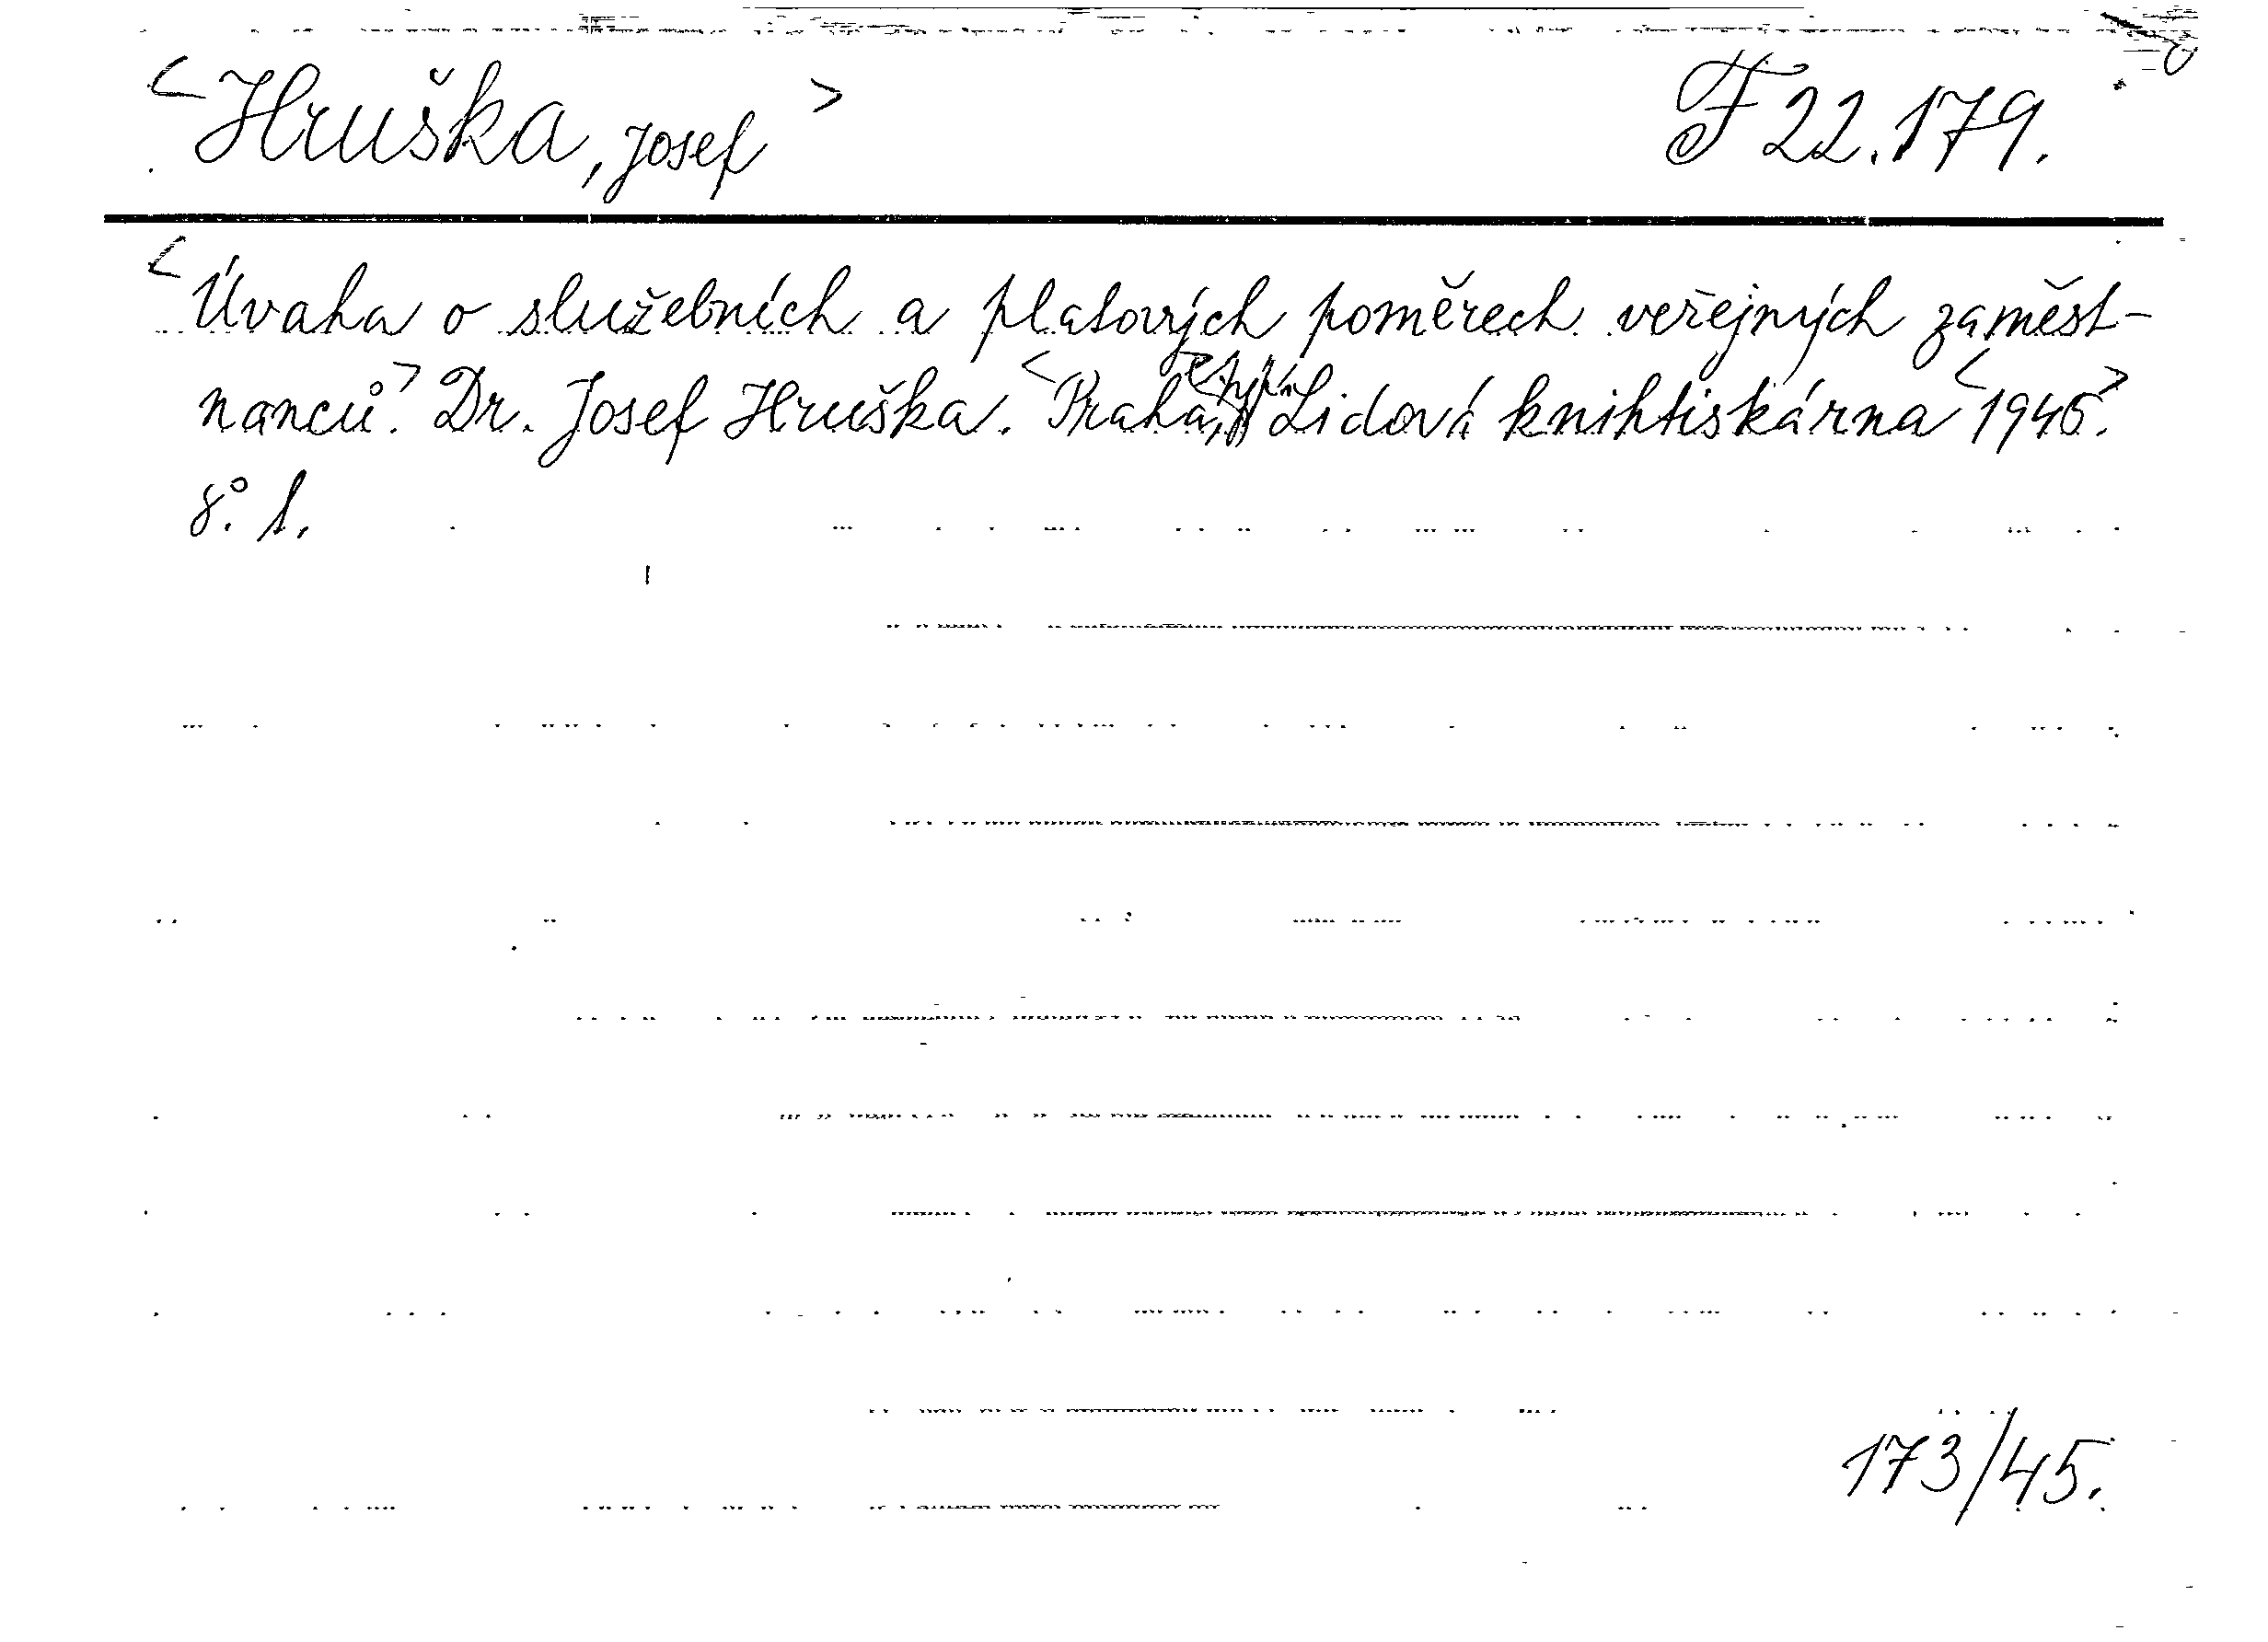 <Hruška, Josef> F 22.179.
<Úvaha o služebních a platových poměrech veřejných zaměst-
nanců.> Dr. Josef Hruška. <Praha, Lidová knihtiskárna <1945>.
8°. 1.
173/45.